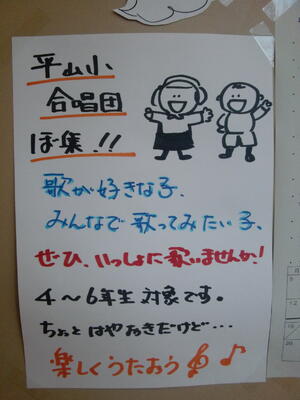 平山小
合唱団
ぼ集!!
歌が好きな子、
みんなで歌ってみたい子、
ぜひ、いっしょに歌いませんか!
4～6年生対象です。
ちょっとはやおきだけど…
楽しくうたおう